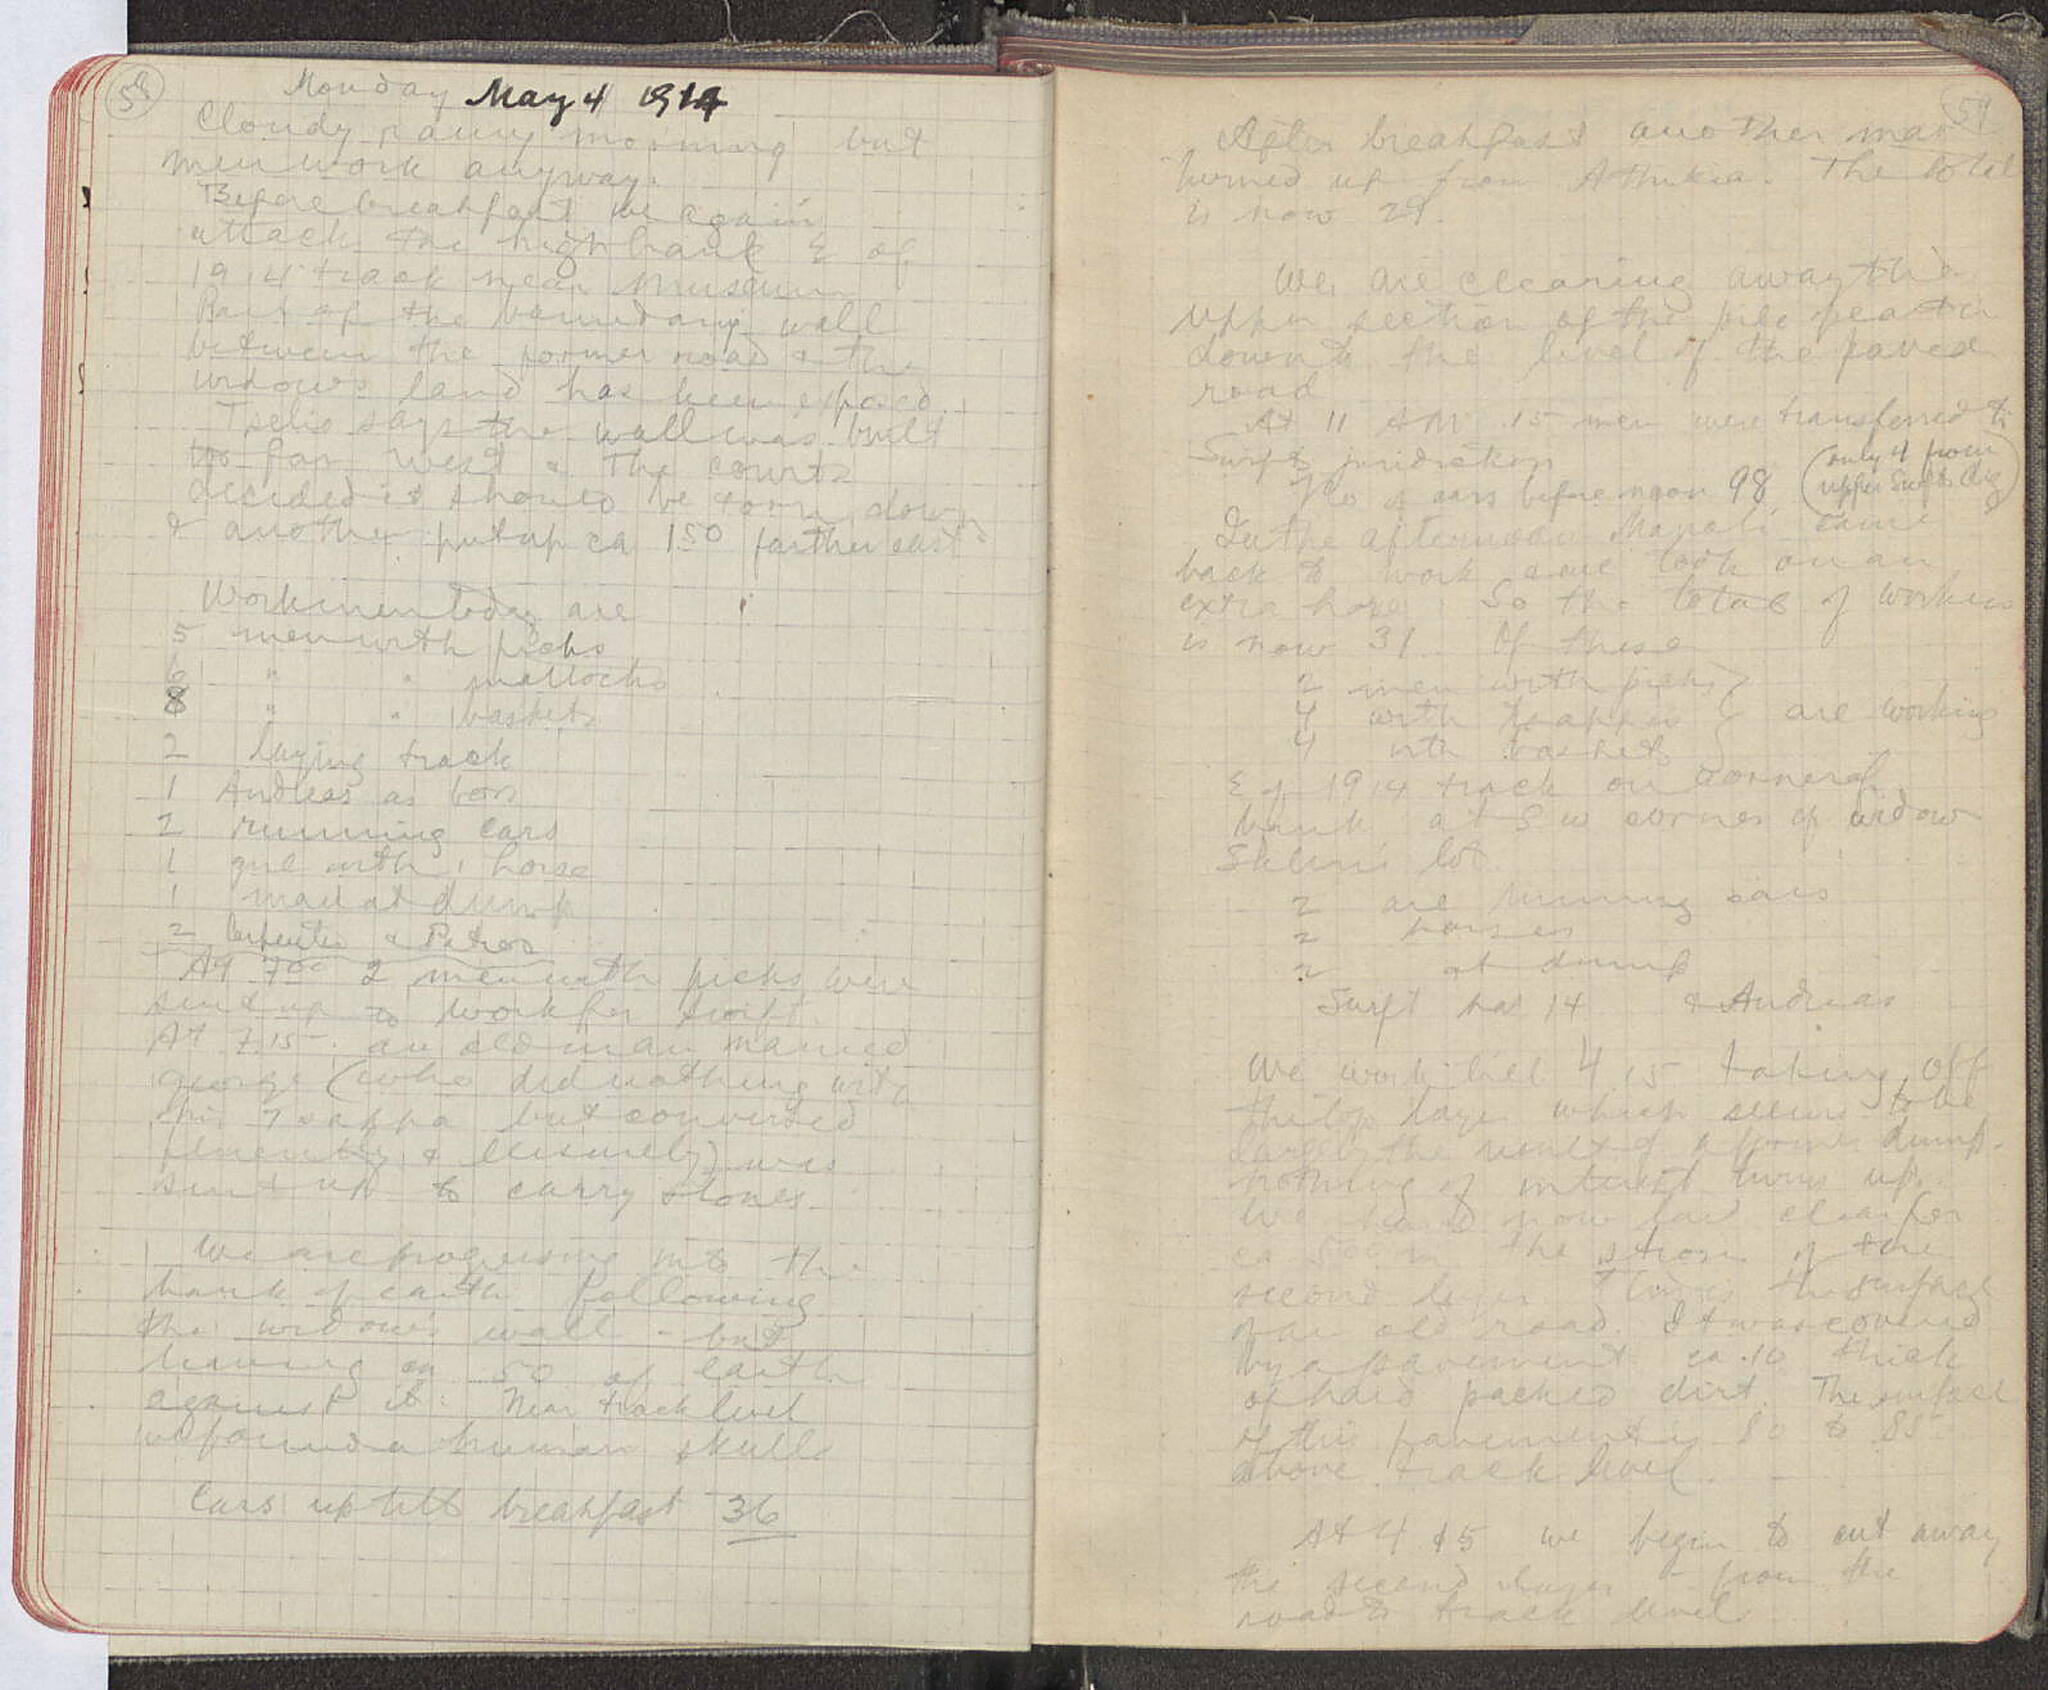 58
Monday May 4 1914
Cloudy rainy morning but
men work anyway.
Before breakfast we again
attack the high bank E of
1914 track near Museum
Part of the boundary wall
between the former road & the
widow's land has been exposed.
Tselio says the wall was built
too far west & the courts
decided it should be torn down
& another put up ca 1.50 farther east
Workmen today are
5 men with picks
6 " " mattocks
8 " " baskets
2 laying track
1 Andreas as boss
2 running cars
1 girl with 1 horse
1 man at dump
2 Carpenter & Petros
At 7.00 2 men with picks were
sent up to work for Swift.
At 7.15 an old man named
George (who did nothing with
his Tsappa but conversed
fluently & leisurely) was
sent up to carry stones.
We are progressing into the
bank of earth following
the widow's wall - but
leaving ca .50 of earth
against it. Near track level
we found a human skull
Cars up till breakfast 36
59
After breakfast another man
turned up from Athikia. The total
is now 29.
We are clearing away the
upper section of the
down to the level of the paved
road
At 11 AM 15 men were transferred to
Swift's jurisdiction
No of cars before noon 98 (only 4 from
upper Swift's dig)
In the afternoon Manoli came
back to work and took on an
extra horse. So the total of workers
is now 31. Of these
2 men with picks
4 with tsappas } are working
4 with baskets
E of 1914 track on corner of
bank at SW corner of widow
lot.
2 are running cars
2 horses
2 at dump
Swift has 14 & Andreas
We work till 4.15 taking off
the top layer which seems to be
largely the result of a former dump.
Nothing of interest turns up.
We have now laid clear for
ca 5.00 m the of the
second layer. This is the surface
of an old road. It was covered
by a pavement ca .10 thick
of hard packed dirt. The surface
of this pavement is .80 to .85
above track level.
At 4.15 we begin to cut away
the second layer - from the
road to track level